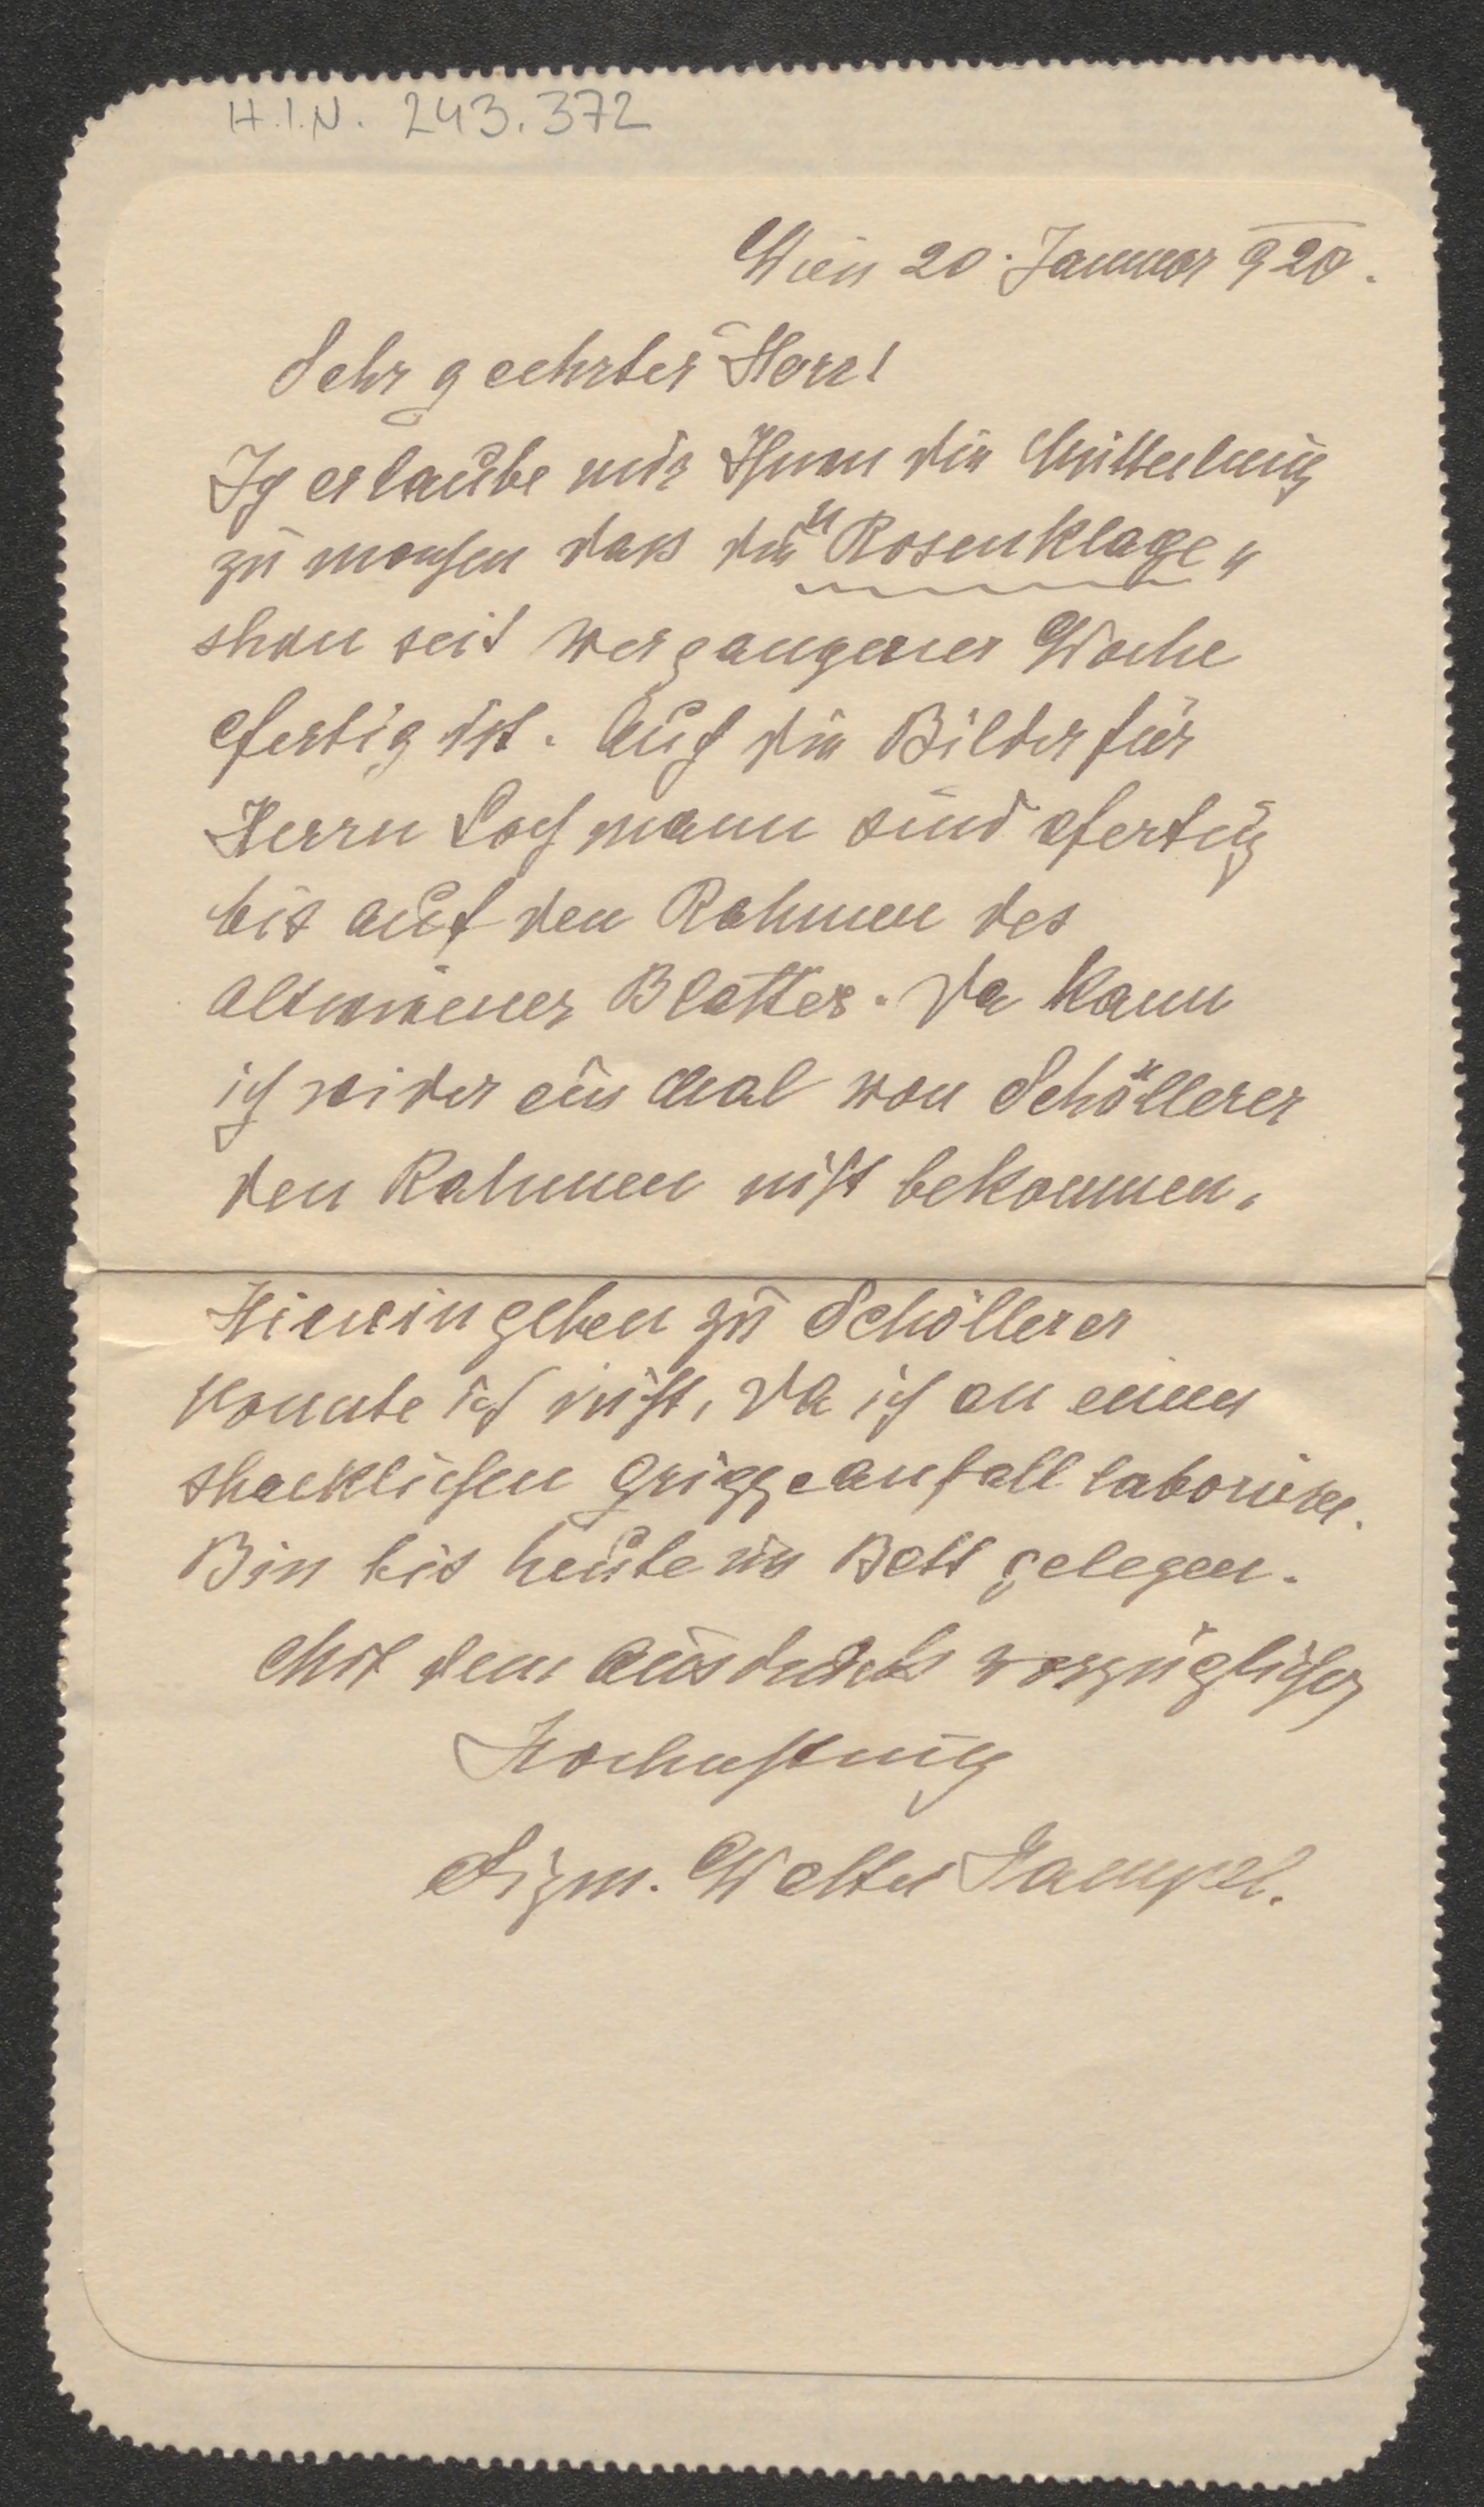 H.I.N. 243.372
Wien 20. Januar 920.
Sehr geehrter Herr!
Ich erlaube mir Ihnen die Mitteilung
zu machen dass die "Rosenklage"
schon seit vergangener Woche
fertig ist. Auch die Bilder für
Herrn Lochmann sind fertig
bis auf den Rahmen des
altwiener Blattes. Da kann
ich wider ein mal von Schöllerer
den Rahmen nicht bekommen.
Hineingehen zu Schöllerer
konnte ich nicht, da ich an einen
schrecklichen Grippeanfall laborire.
Bin bis heute im Bett gelegen.
Mit dem Ausdruck vorzüglicher
Hochachtung
Sigm. Walter Hampel.